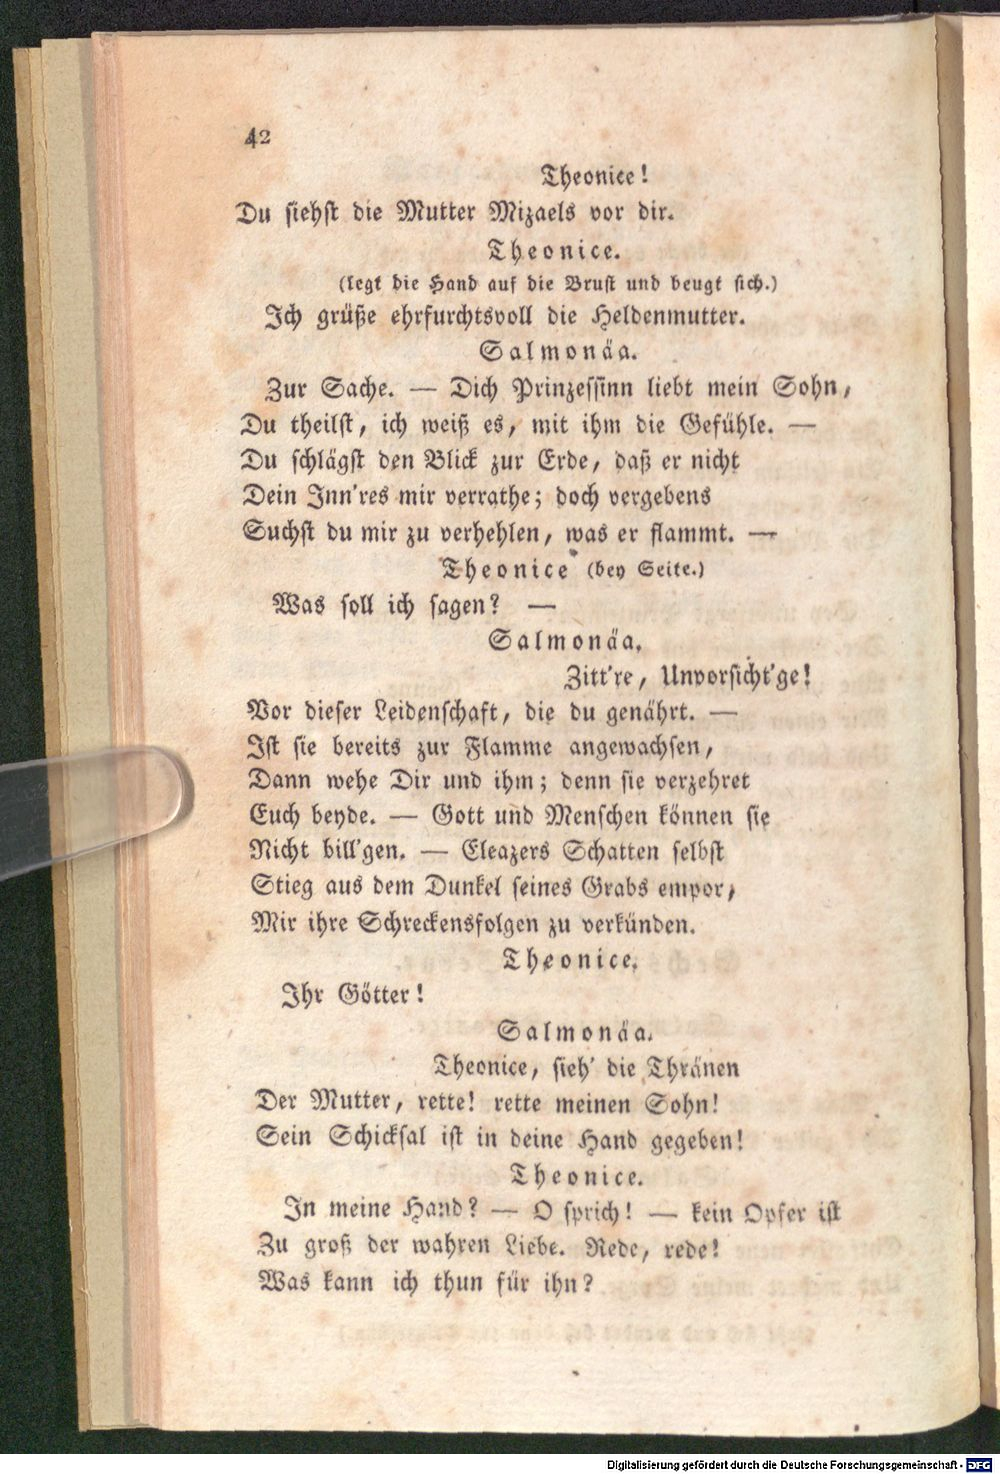 42
Theonice!
Du siehst die Mutter Mizaels vor dir.
Theonice.
(legt die Hand auf die Brust und beugt sich.)
Ich grüße ehrfurchtsvoll die Heldenmutter.
Salmonäa.
Zur Sache. — Dich Prinzessinn liebt mein Sohn,
Du theilst, ich weiß es, mit ihm die Gefühle. —
Du schlägst den Blick zur Erde, daß er nicht
Dein Inn'res mir verrathe; doch vergebens
Suchst du mir zu verhehlen, was er flammt. —
Theonice (bey Seite.)
Was soll ich sagen? —
Salmonäa.
Zitt're, Unvorsicht'ge!
Vor dieser Leidenschaft, die du genährt. —
Ist sie bereits zur Flamme angewachsen,
Dann wehe Dir und ihm; denn sie verzehret
Euch beyde. — Gott und Menschen können sie
Nicht bill'gen. — Eleazers Schatten selbst
Stieg aus dem Dunkel seines Grabs empor,
Mir ihre Schreckensfolgen zu verkünden.
Theonice.
Ihr Götter!
Salmonäa.
Theonice, sieh' die Thränen
Der Mutter, rette! rette meinen Sohn!
Sein Schicksal ist in deine Hand gegeben!
Theonice.
In meine Hand? — O sprich! — kein Opfer ist
Zu groß der wahren Liebe. Rede, rede!
Was kann ich thun für ihn?
Digitalisierung gefördert durch die Deutsche Forschungsgemeinschaft - DFG